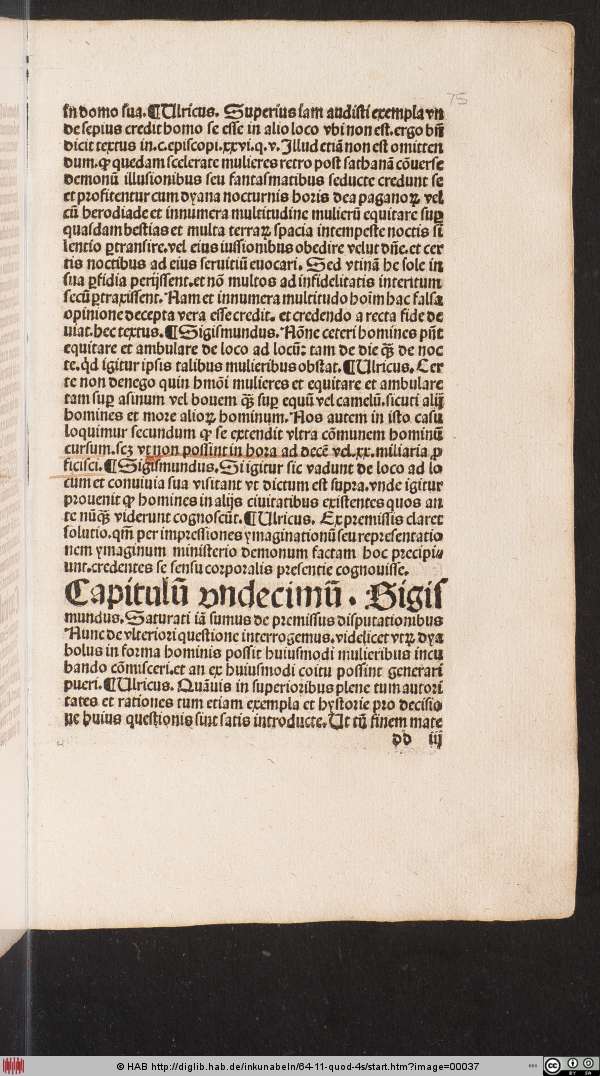 75
in domo sua. ¶Ulricus. Superius iam audisti exempla vn
de sepius credit homo se esse in alio loco vbi non est. ergo bñ
dicit textus in. c. episcopi. xxvi. q. v. Illud etiā non est omitten
dum. ꝙ quedam scelerate mulieres retro post sathanā cōuerse
demonū illusionibus seu fantasmatibus seducte credunt se
et profitentur cum dyana nocturnis horis dea paganoꝝ vel
cū herodiade et innumera multitudine mulierū equitare suꝑ
quasdam bestias et multa terraꝝ spacia intempeste noctis si
lentio ꝑtransire. vel eius iussionibus obedire velut dñe. et cer
tis noctibus ad eius seruitiū euocari. Sed vtinā he sole in
sua ꝑfidia perijssent. et nō multos ad infidelitatis interitum
secū ꝑtraxissent. Nam et innumera multitudo hoim hac falsa
opinione decepta vera esse credit. et credendo a recta fide de
uiat. hec textus. ¶Sigismundus. Nōne ceteri homines pñt
equitare et ambulare de loco ad locū: tam de die q̄ꝫ de noc
te. qd̓ igitur ipsis talibus mulieribus obstat. ¶Ulricus. Cer
te non denego quin hmōi mulieres et equitare et ambulare
tam suꝑ asinum vel bouem q̄ꝫ suꝑ equū vel camelū. sicuti alij
homines et more alioꝝ hominum. Nos autem in isto casu
loquimur secundum ꝙ se extendit vltra cōmunem hominū
cursum. scꝫ vt non possint in hora ad decē vel. xx. miliaria ꝓ
ficisci. ¶Sigismundus. Si igitur sic vadunt de loco ad lo
cum et conuiuia sua visitant vt dictum est supra. vnde igitur
prouenit ꝙ homines in alijs ciuitatibus existentes quos an
te nūq̄ꝫ viderunt cognoscūt. ¶Ulricus. Ex premissis claret
solutio. qm̄ per impressiones ymaginationū seu representatio
nem ymaginum ministerio demonum factam hoc precipi⸗
unt. credentes se sensu corporalis presentie cognouisse.
Capitulū vndecimū. Sigis
mundus. Saturati iā sumus de premissus disputationibus
Nunc de vlteriori questione interrogemus. videlicet vtꝝ dya
bolus in forma hominis possit huiusmodi mulieribus incu
bando cōmisceri. et an ex huiusmodi coitu possint generari
pueri. ¶Ulricus. Quāuis in superioribus plene tum autori
tates et rationes tum etiam exempla et hystorie pro decisio
ne huius questionis sint satis introducte. Ut tn̄ finem mate
dd iij
© HAB http://diglib.hab.de/inkunabeln/64-11-quod-4s/start.htm?image=00037
cc BY SA